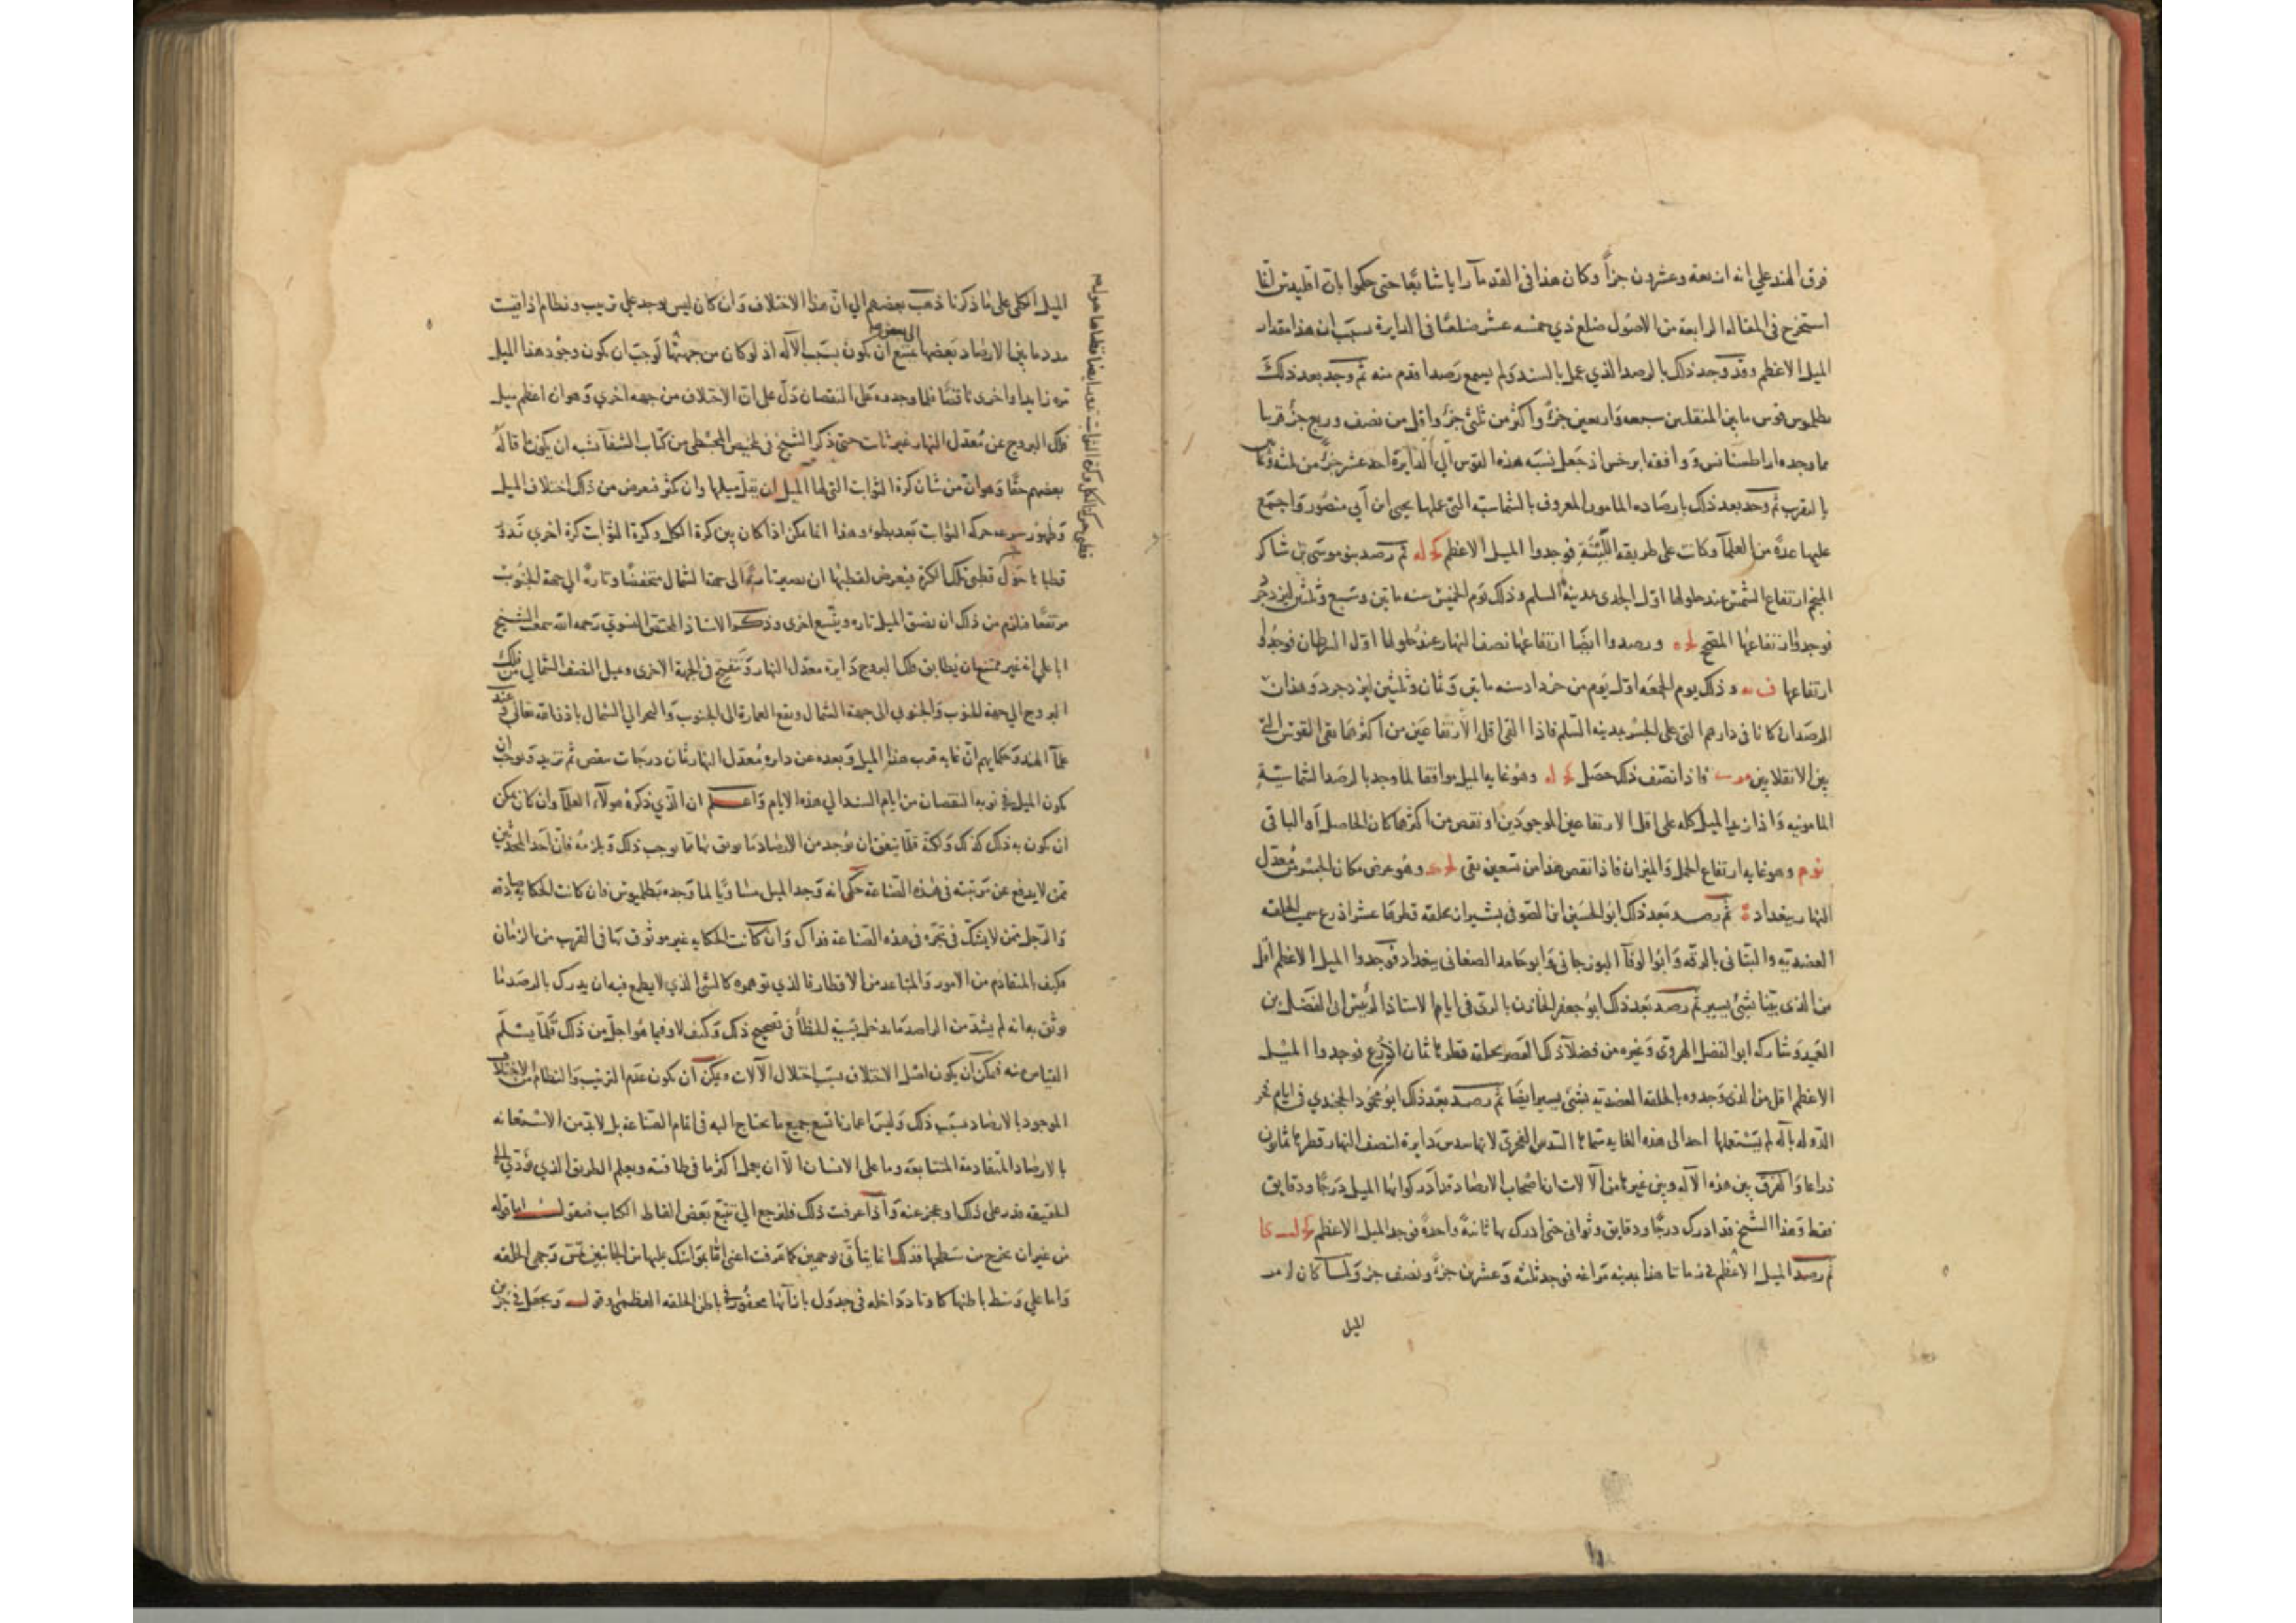 فرق الهند علي انه اربعة وعشرون جزأ وكان هذا في القدمآ رايا شايعا حتى حكموا بان اقليدس انما
استخرج في المقالة الرابعة من الاصول ضلع ذي خمسه عشر ضلعا في الدايرة بسبب ان هذا مقدار
الميل الاعظم وقد وجد ذلك بالرصد الذي عمل بالسند ولم يسمع رصد اقدم منه ثم وجد بعد ذلك
بطلميوس قوس ما بين المنقلبين سبعه واربعين جزءً واكثر من ثلثي جزء واقل من نصف وربع جزء قريبا
مما وجده اراطسثانس ووافقه ابرخس اذ جعل نسبه هذه القوس الي الدايرة احد عشر جزء من ثلثه وثمانين
بالتقريب ثم وجد بعد ذلك بارصاده المامون المعروف بالشماسيه التي عملها يحيى ابن أبي منصور واجتمع
عليها عدة من العلمآ وكانت على طريقه اللبنة فوجدوا الميل الاعظم كج له ثم رصد بنو موسى بن شاكر
المنجم ارتفاع الشمس عند حلولها اول الجدي بمدينة السلم وذلك يوم الخميس سنه ماتين وسبع وثلثين ليزدجرد
فوجدوا ارتفاعها المصحح لج ه ورصدوا ايضا ارتفاعها نصف النهار عند حلولها اول السرطان فوجدوا
ارتفاعها ف يه وذلك يوم الجمعه اول يوم من خرداد سنه ماتين وثمان وثلثين ليزدجرد وهذان
الرصدان كانا في دارهم التي على الجسر بمدينه السلم فاذا القي اقل الارتفاعين من اكثرهما بقي القوس التي
بين الانقلابين مز ي فاذا نصف ذلك حصل كج له وهو غايه الميل موافقا لما وجد بالرصد الشماسيّة
المامونيه واذا زيد الميل كله على اقل الارتفاعين الموجودين او نقص من اكثرهما كان الحاصل أو الباقي
نو م وهو غايه ارتفاع الحمل والميزان فاذا نقص هذا من تسعين بقي لج ك وهو عرض مكان الجسر من معدل
النهار ببغداد ثم رصد بعد ذلك ابو الحسين ابن الصوفي بشيراز بحلقه قطرها عشر اذرع سميت الحلقه
العضديّه والبتاني بالرقه وابو الوفآ البوزجاني وابو حامد الصغاني ببغداد فوجدوا الميل الاعظم اقل
من الذي بيّنا بشئ يسير ثم رصد بعد ذلك ابو جعفر الخازن بالري في ايام الاستاذ الرئيس ابي الفضل بن
العميد وشاركه ابو الفضل الهروي وغيره من فضلآ ذلك العصر بحلقه قطرها ثمان اذرع فوجدوا الميل
الاعظم اقل من الذي وجدوه بالحلقه العضديه بشئ يسير ايضا ثم رصد بعد ذلك ابو محمود الخجندي في ايام فخر
الدوله بآله لم يستعملها احد الى هذه الغايه سماها السدس الفخري لانها سدس دايرة لنصف النهار قطرها ثمانون
ذراعا والفرق بين هذه الاله وبين غيرها من آلالات ان اصحاب الارصاد قد ادركوا بها الميل درجًا ودقايق
فقط وهذا الشيخ قد ادرك درجًا ودقايق وثواني حتى ادرك بها ثانيةً واحدةً فوجد الميل الاعظم كج لب كا
ثم رصد الميل الاعظم في زماننا هذا بمدينه مراغه فوجد ثلثه وعشرين جزءً ونصف جزء ولما كان امر
الميل
الميل الكلى على ما ذكرنا ذهب بعضهم الي ان هذا الاختلاف وان كان ليس يوجد علي ترتيب ونظام اذا قيست
مدد ما بين الارصاد بعضها الى بعض يمتنع ان يكون بسبب الآله اذ لو كان من جهتها لوجب ان يكون وجود هذا الميل
مره زايدا واخرى ناقصًا فلما وجدوه على النقصان دل على ان الاختلاف من جهه اخري وهو ان اعظم ميل
فلك البروج عن معدل النهار غير ثابت حتى ذكر الشيخ في تلخيص المجسطي من كتاب الشفآ يشبه ان يكون ما قاله
بعضهم حقًا وهو ان من شان كرة الثوابت التي لها الميل ان يقل ميلها وان كثر فيعرض من ذلك اختلاف الميل
وظهور سرعه حركه الثوابت بعد بطوء وهذا انما يمكن اذا كان بين كرة الكل وكرة الثوابت كرة اخري تدور
قطباها حول قطبي تلك الكرة فيعرض لقطبها ان يصير تارة الى جهة الشمال منخفضًا وتارةً الى جهة الجنوب
مرتفعًا فيلزم من ذلك ان يضيق الميل تاره ويتسع اخرى وذكر الاستاذ المختص النسوي رحمه الله سمعت الشيخ
ابا علي انه غير ممتنع ان يطابق فلك البروج دايرة معدل النهار وينفتح في الجهة الاخرى وميل النصف الشمالي من فلك
البروج الي جهة الجنوب والجنوبي الى جهة الشمال ويقع العمارة الى الجنوب والبحر الي الشمال باذن الله تعالى وعند
علمآ الهند وحكمايهم ان غايه قرب هذا الميل وبعده عن دايره معدل النهار ثمان درجات ينقص ثم تزيد ويوجب ان
يكون الميل في نوبه النقصان من ايام السند الي هذه الايام واعلم ان الذي ذكره هولآء العلمآ وان كان يمكن
ان يكون به ذلك كذلك ولكنه قلّما يتفق ان يوجد من الارصاد ما يوثق بها مما يوجب ذلك ويلزمه فان احد المحدثين
ممن لا يدفع عن مرتبته في هذه الصناعة حكى انه وجد الميل مساويًا لما وجده بطلميوس فان كانت الحكايه صادقه
والرجل ممن لا يشك في تبحره في هذه الصناعه فذاك وان كانت الحكايه غير موثوق بها في القرب من الزمان
فكيف المتقادم من الامور والمتباعد من الاقطار فالذي توهموه كالشئ الذي لا يطمع فيه ان يدرك بالرصد ما
وثق به انه لم يشذ من الراصد ما يدخل بسببه الخطأ في تصحيح ذلك وكيف لا وفيما هو اجل من ذلك قلّما يسلم
القياس منه فيمكن ان يكون اصل الاختلاف بسبب اختلال الآلات ويمكن ان يكون عدم الترتيب والنظام من الاختلاف
الموجود بالارصاد بسبب ذلك وليس اعمارنا تسع جميع ما يحتاج اليه في اتمام الصناعة بل لابد من الاستعانه
بالارصاد المتقادمة المتتابعه وما على الانسان الّا ان يعمل اكثر ما في طاقته ويعلم الطريق الذي يؤدي الى
الحقيقه قدر على ذلك او عجز عنه واذا عرفت ذلك فلنرجع الي تتبع بعض الفاظ الكتاب فنقول اما قوله
من غيران يخرج من سطحها فذلك انما يتأتى بوجهين كما عرفت اعني اما بموانسك عليها من الجانبين وهي الحلقه
واما علي وسط باطنها كاوتاد داخله في جدول بازآئها محفور في باطن الحلقه العظمى وقوله ويجعل في جزئين
قطبى حركة الكل وكرة الثوابت تدور ايضا قطباها حول